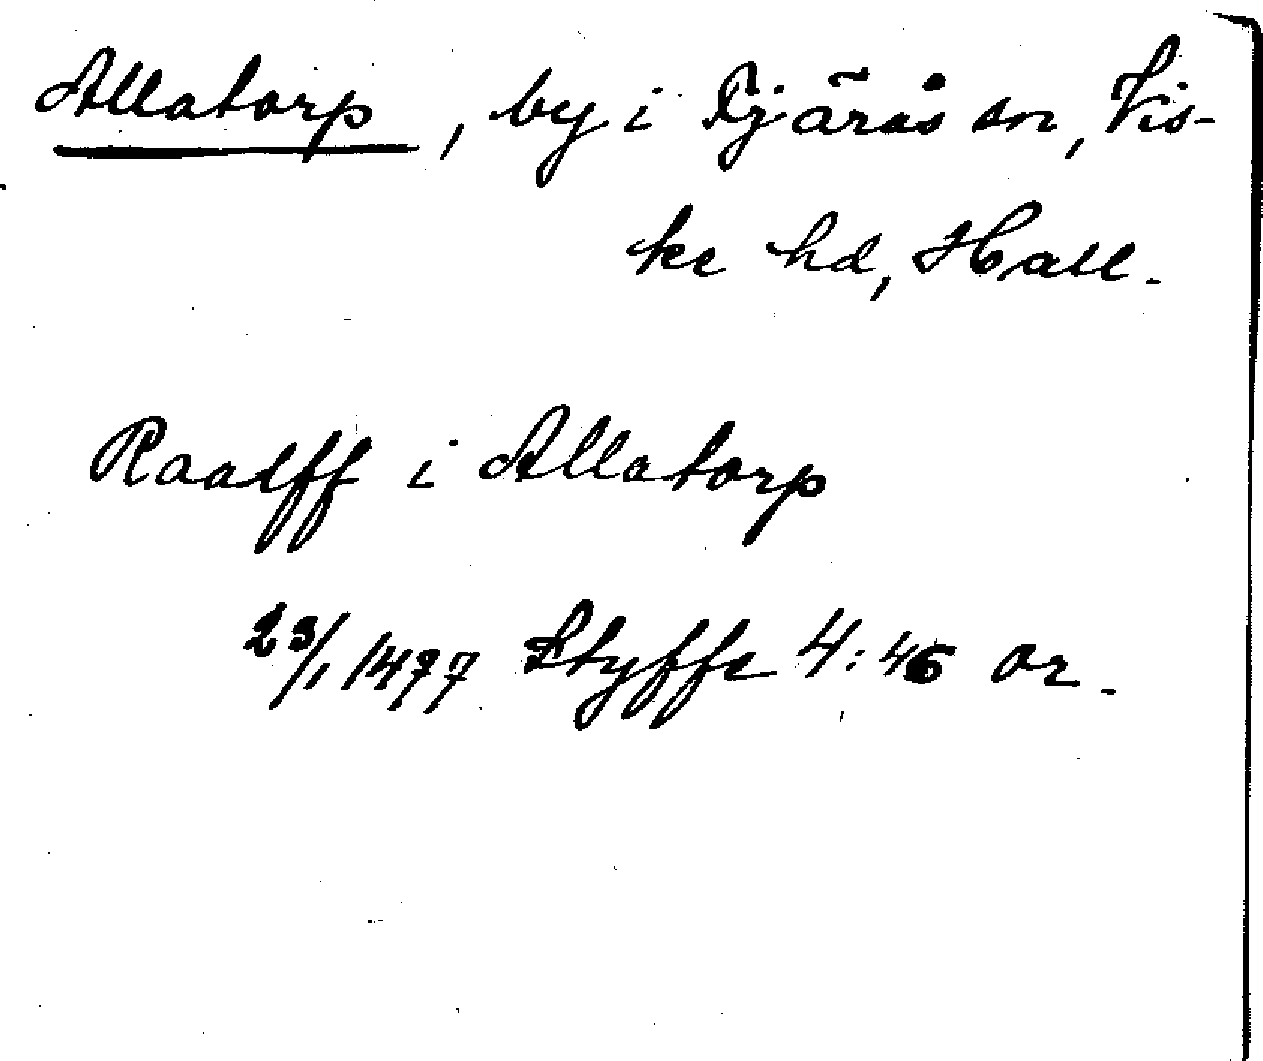 Allatorp, by i Fjärås sn, Vis-
ke hd, Hall.
Raalff i Allatorp
23/1 1477 Styffe 4:46 or.